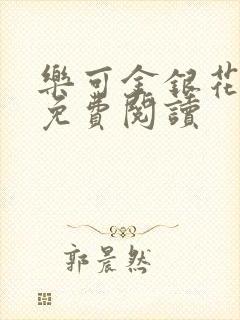 樂可金銀花
免費閱讀
郭晨然